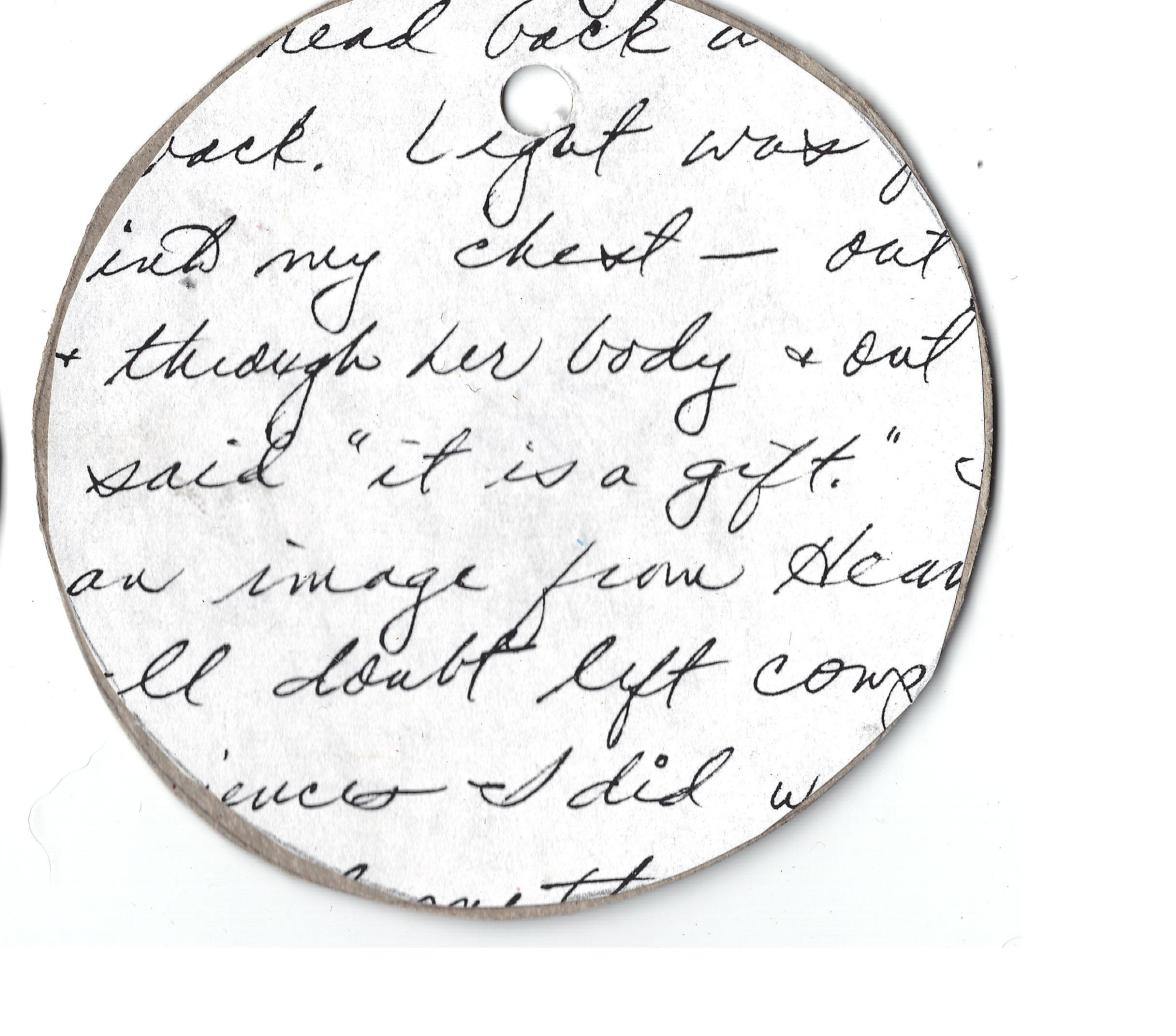 head back
back. Light was
into my chest — out
+ through her body + out
said "it is a gift."
an image from Heav
ll doubt left comp
iences I did w